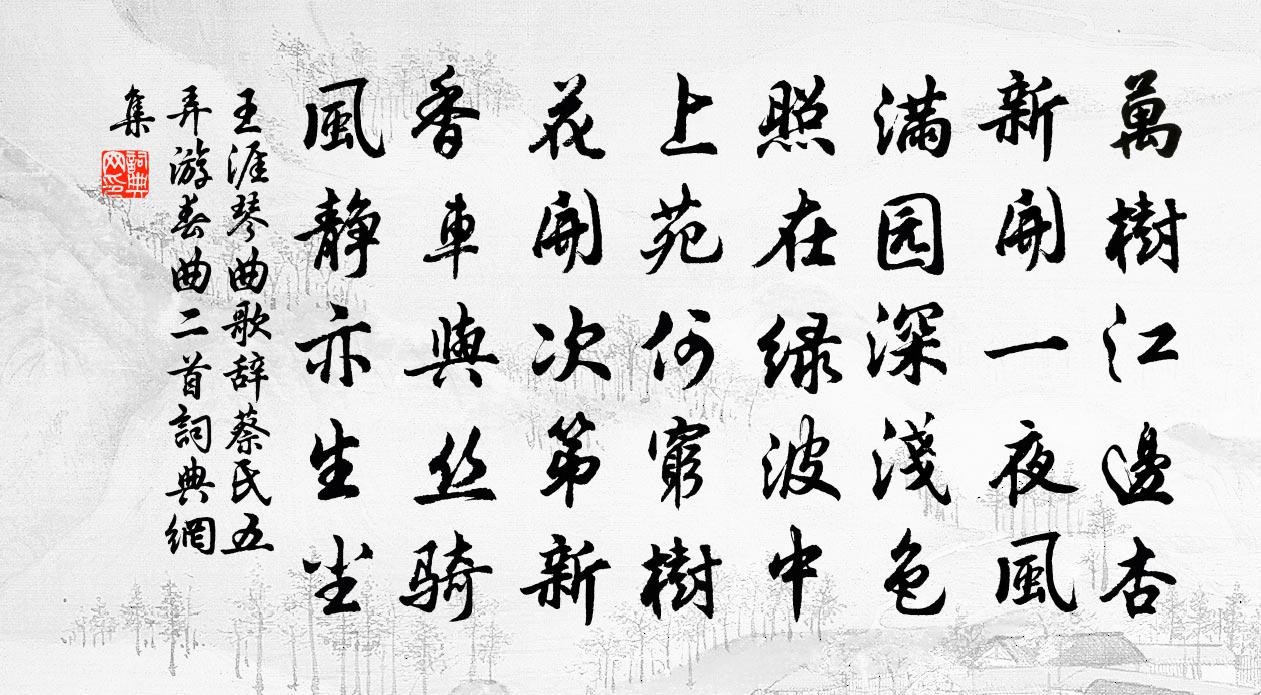 萬樹江邊杏
新開一夜風
滿园深淺色
照在绿波中
上苑何窮樹
花開次第新
香車與丝騎
風静亦生尘
王涯琴曲歌辞蔡氏五
弄游春曲二首詞典網
集
詞典
网印